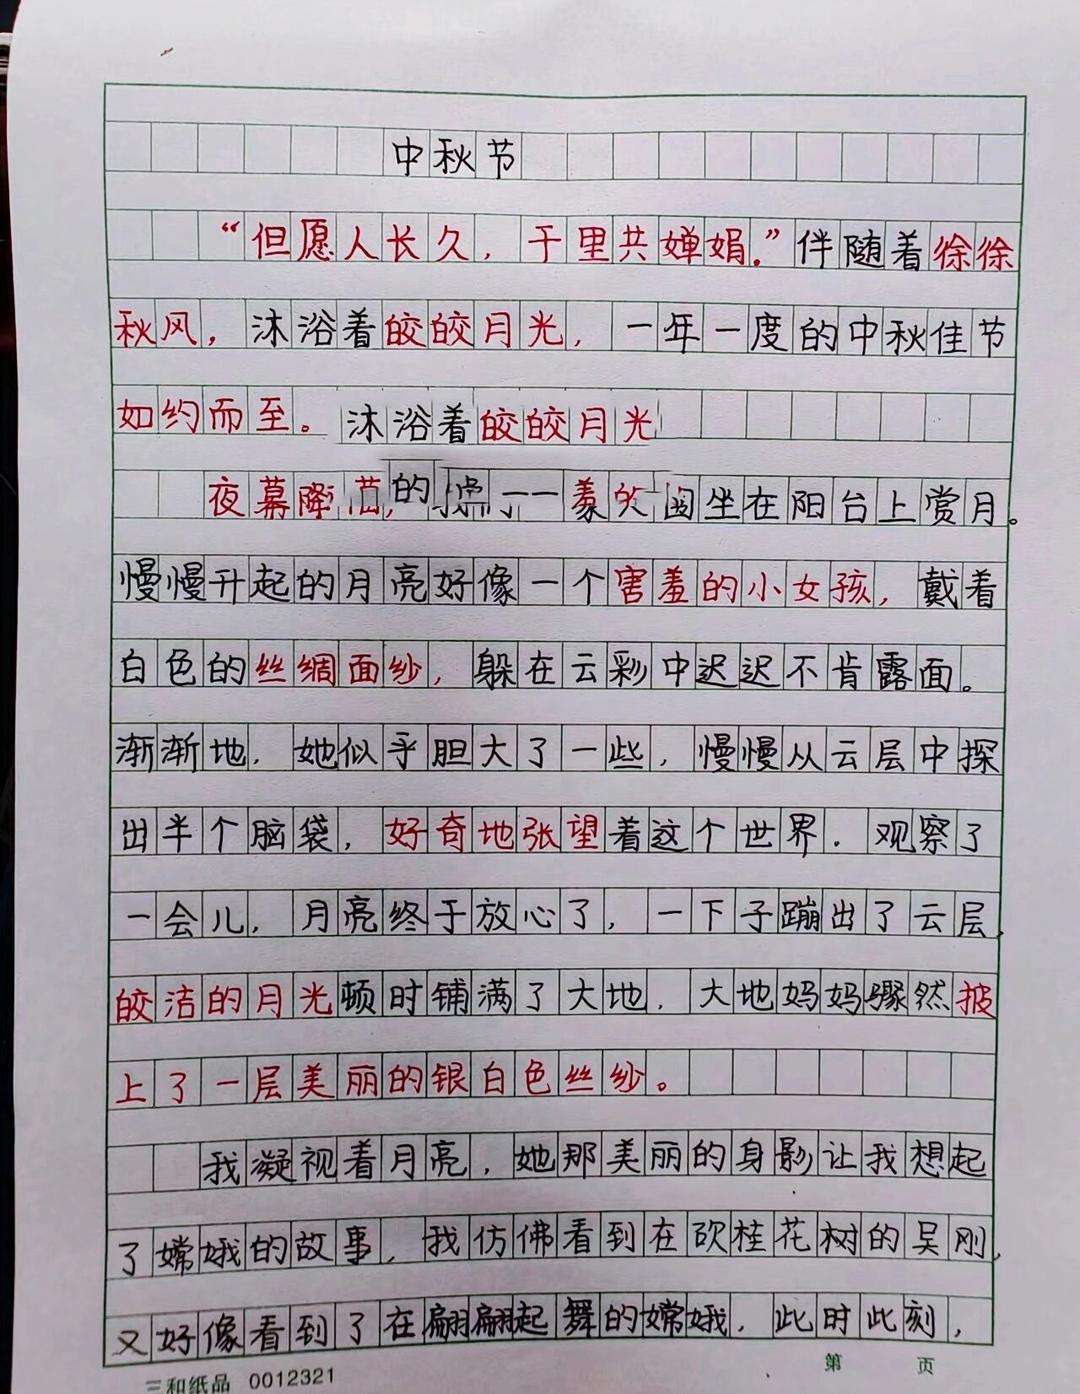 中秋节
“但愿人长久，千里共婵娟.”伴随着徐徐
秋风，沐浴着皎皎月光，一年一度的中秋佳节
如约而至。沐浴着皎皎月光
夜幕降 的 一一 坐在阳台上赏月。
慢慢升起的月亮好像一个害羞的小女孩，戴着
白色的丝绸面纱，躲在云彩中迟迟不肯露面。
渐渐地，她似乎胆大了一些，慢慢从云层中探
出半个脑袋，好奇地张望着这个世界．观察了
一会儿，月亮终于放心了，一下子蹦出了云层，
皎洁的月光顿时铺满了大地．大地妈妈骤然披
上了一层美丽的银白色丝纱。
我凝视着月亮，她那美丽的身影让我想起
了嫦娥的故事，我仿佛看到在砍桂花树的吴刚，
又好像看到了在翩翩起舞的嫦娥．此时此刻，
三和纸品 0012321
第 页